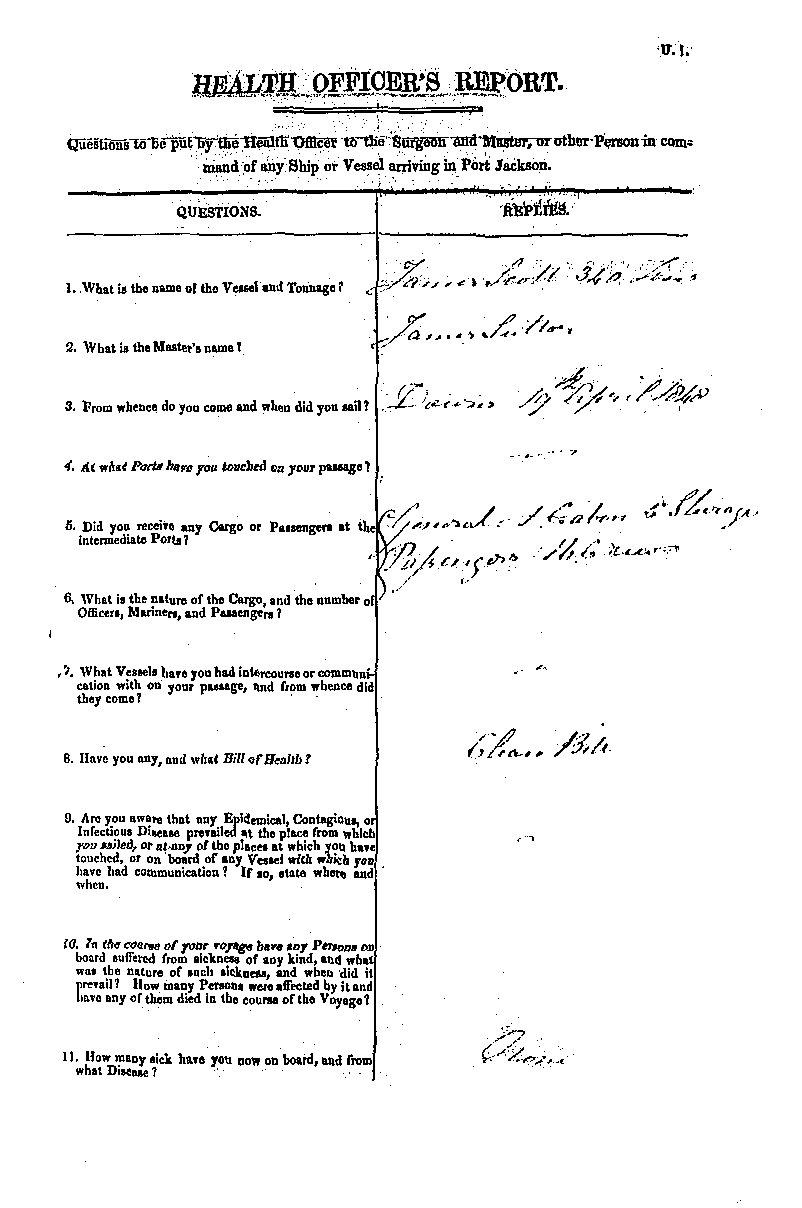 U. 1.
HEALTH OFFICER'S REPORT.
Questions to be put by the Health Officer to the Surgeon and Master, or other Person in com-
mand of any Ship or Vessel arriving in Port Jackson.
QUESTIONS.
REPLIES.
1. What is the name of the Vessel and Tonnage?
James Scott 340 Tons
2. What is the Master's name?
James Sutton
3. From whence do you come and when did you sail?
Downs 19th April 1848
4. At what Ports have you touched on your passage?
5. Did you receive any Cargo or Passengers at the
intermediate Ports?
General Cabin & Steerage
Passengers 16 Crew
6. What is the nature of the Cargo, and the number of
Officers, Mariners, and Passengers?
7. What Vessels have you had intercourse or communi-
cation with on your passage, and from whence did
they come?
8. Have you any, and what Bill of Health?
Clean Bill
9. Are you aware that any Epidemical, Contagious, or
Infectious Disease prevailed at the place from which
you sailed, or at any of the places at which you have
touched, or on board of any Vessel with which you
have had communication? If so, state where and
when.
10. In the course of your voyage have any Persons on
board suffered from sickness of any kind, and what
was the nature of such sickness, and when did it
prevail? How many Persons were affected by it and
have any of them died in the course of the Voyage?
11. How many sick have you now on board, and from
what Disease?
None